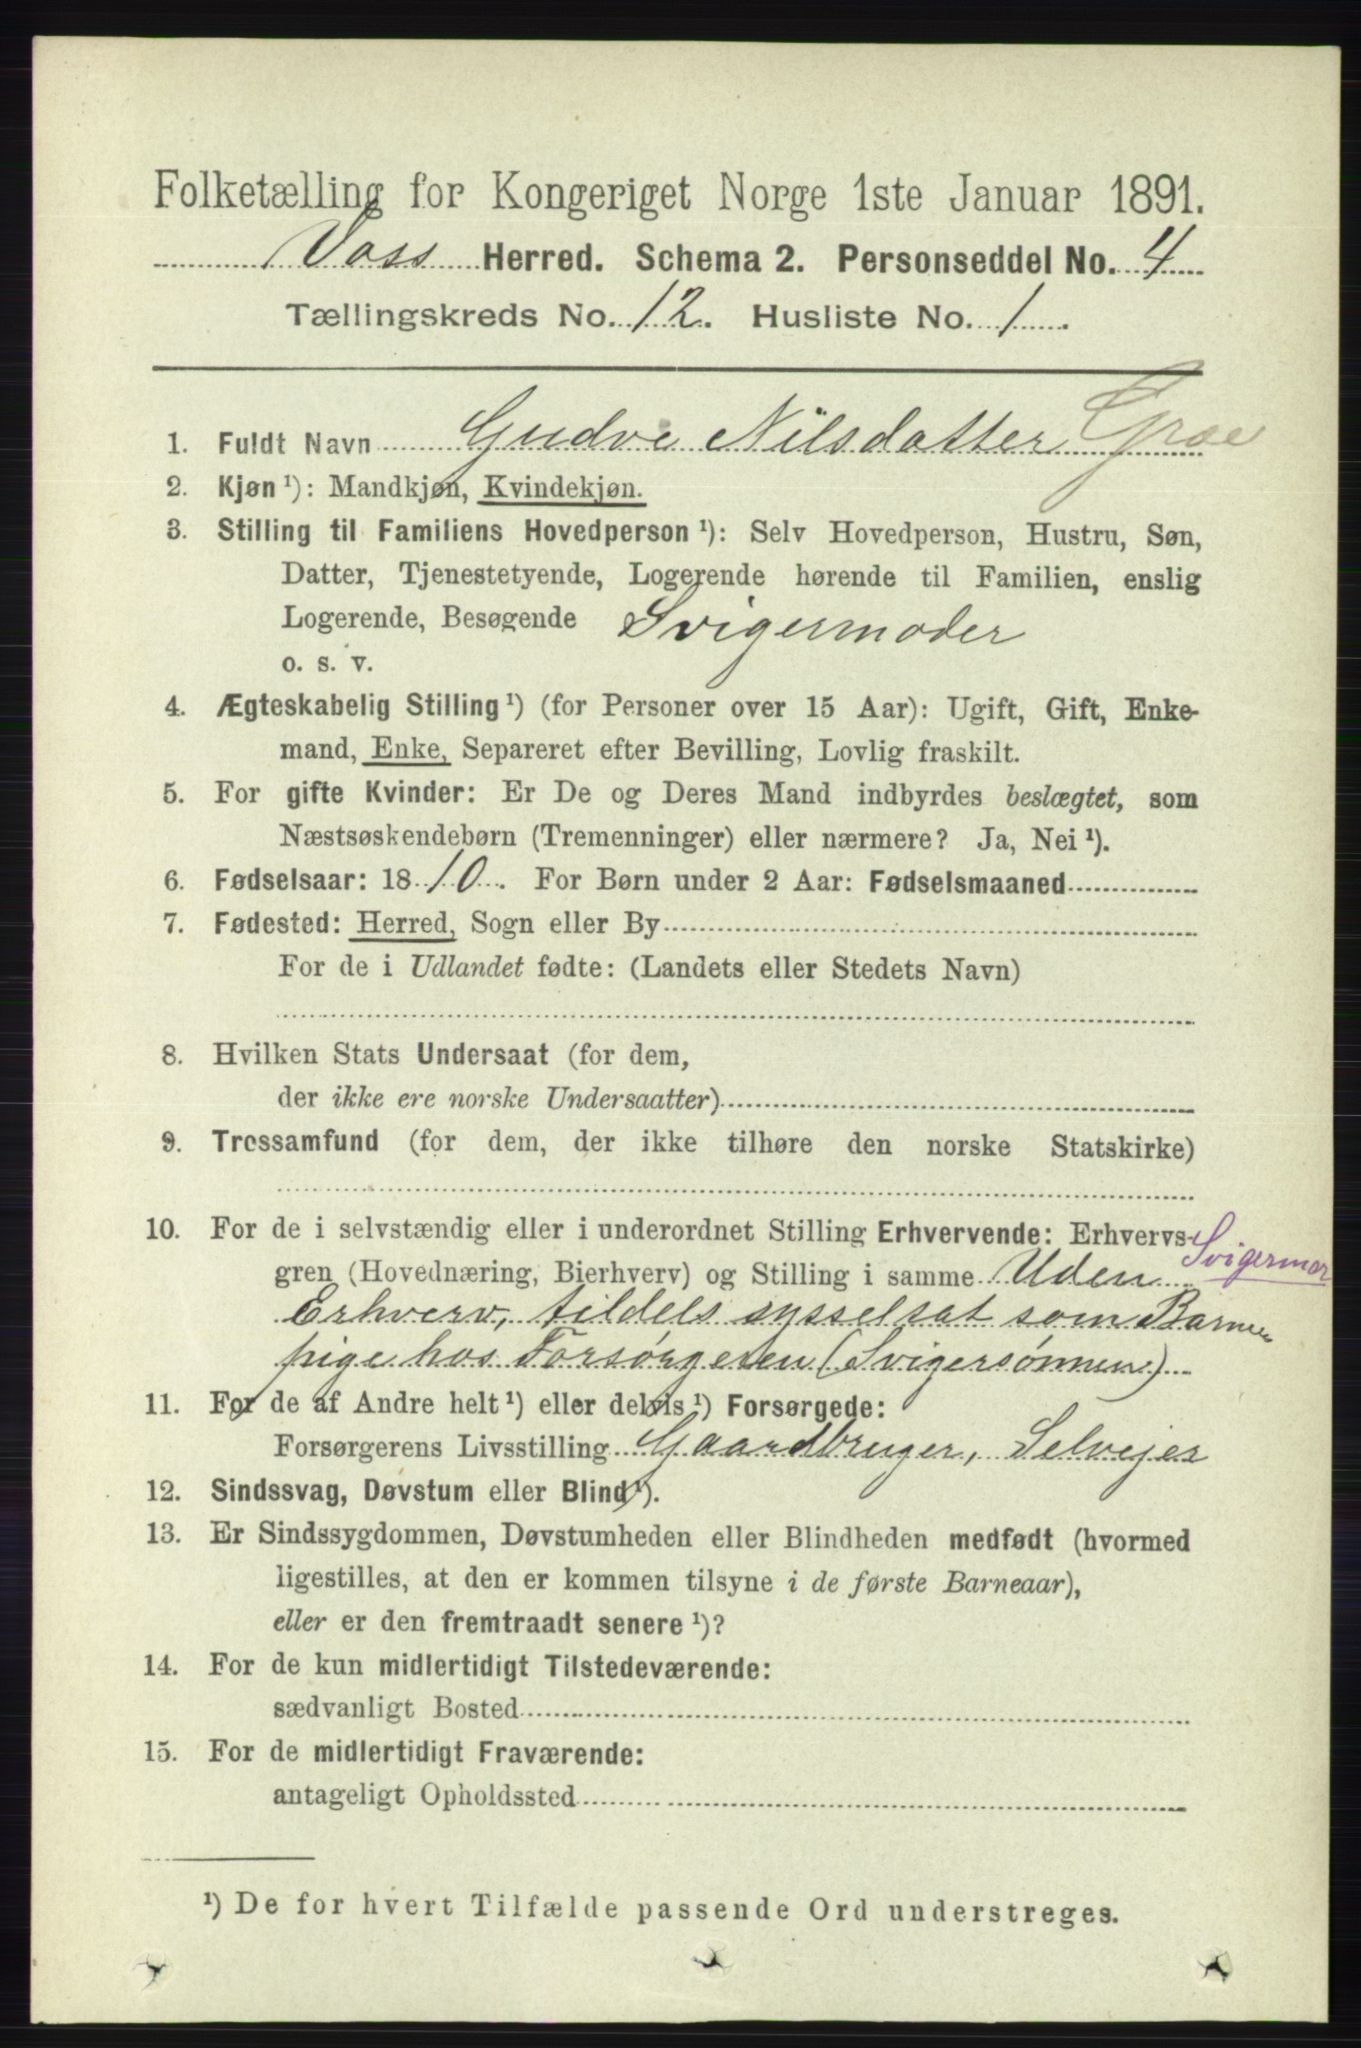 Folketælling for Kongeriget Norge 1ste Januar 1891.
Voss Herred. Schema 2. Personseddel No. 4
Tællingskreds No. 12. Husliste No. 1.
1. Fuldt Navn Gudve Nilsdatter Græe
2. Kjøn ¹): Mandkjøn, Kvindekjøn.
3. Stilling til Familiens Hovedperson ¹): Selv Hovedperson, Hustru, Søn,
Datter, Tjenestetyende, Logerende hørende til Familien, enslig
Logerende, Besøgende Svigermoder
o. s. v.
4. Ægteskabelig Stilling ¹) (for Personer over 15 Aar): Ugift, Gift, Enke-
mand, Enke, Separeret efter Bevilling, Lovlig fraskilt.
5. For gifte Kvinder: Er De og Deres Mand indbyrdes beslægtet, som
Næstsøskendebørn (Tremenninger) eller nærmere? Ja, Nei ¹).
6. Fødselsaar: 1810. For Børn under 2 Aar: Fødselsmaaned
7. Fødested: Herred, Sogn eller By
For de i Udlandet fødte: (Landets eller Stedets Navn)
8. Hvilken Stats Undersaat (for dem,
der ikke ere norske Undersaatter)
9. Trossamfund (for dem, der ikke tilhøre den norske Statskirke)
10. For de i selvstændig eller i underordnet Stilling Erhvervende: Erhvervs-
Svigermor
gren (Hovednæring, Bierhverv) og Stilling i samme Uden
Erhverv, tildels sysselsat som Barne
pige hos Forsørgeren (Svigersønnen)
11. For de af Andre helt ¹) eller delvis ¹) Forsørgede:
Forsørgerens Livsstilling Gaardbruger, Selvejer
12. Sindssvag, Døvstum eller Blind ¹).
13. Er Sindssygdommen, Døvstumheden eller Blindheden medfødt (hvormed
ligestilles, at den er kommen tilsyne i de første Barneaar),
eller er den fremtraadt senere ¹)?
14. For de kun midlertidigt Tilstedeværende:
sædvanligt Bosted
15. For de midlertidigt Fraværende:
antageligt Opholdssted
¹) De for hvert Tilfælde passende Ord understreges.